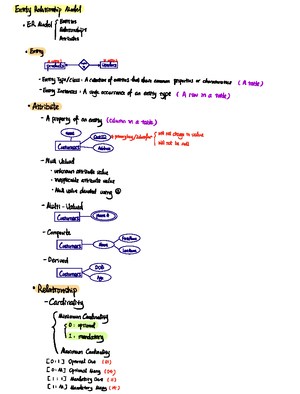 Entity Relationship Model
• E-R Model { Entities
Relationships
Attributes
• Entity
- Entity Type/Class : A collection of entities that share common properties or characteristics ( A table)
- Entity Instances : A single occurrence of an entity type ( A row in a table)
• Attribute
- A property of an entity (Column in a table)
Name
CustID → primary key/Identifier { will not change in value
will not be null
Customers
Address
- Null Valued
• unknown attribute value
• inapplicable attribute value
• Null value denoted using
- Multi - Valued
Customers
- Composite
Customers
Name
FirstName
LastName
- Derived
Customers
DOB
Age
• Relationship
- Cardinality
Minimum Cardinality
0 : optional
1 : mandatory
Maximum Cardinality
[0:1] Optional One
[0:M] Optional Many
[1:1] Mandatory One
[1:M] Mandatory Many